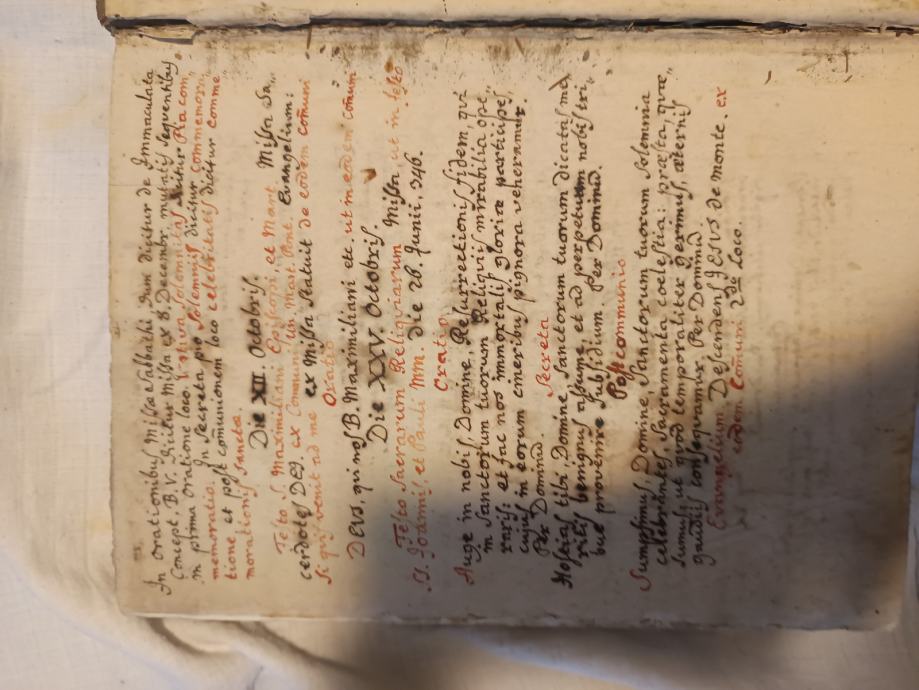 In Orationibus Missæ sabbathi, dum dicitur de Immaculata
Concept. B. V. dicitur Missa ex 8. Decembr. mutatis sequentibus
in prima Oratione loco. solemnitas dicitur Pia com,,
memoratio. In secreta pro solemnis dicitur Commemora,,
tione et post comunionem loco celebritatis dicitur Comme,,
morationis sancta.
Die XII. Octobris.
Festo S. Maximiliani Episcopi, et Mart. Missa Sa,,
cerdotes DEI. ex Communi un. Mart. Pont. Evangelium:
Si quis venit ad me ex Missa statuit de eodem Comuni
Oratio
DEUS, qui nos B. Maximiliani etc. ut in eodem comuni
Die XXV. Octobris
Festo Sacrarum Reliquiarum Missa ut in festo
SS. Joannis, et Pauli MM. die 26. Junii, 246.
Oratio
Auge in nobis, Domine, Resurrectionis fidem, qui
in Sanctorum tuorum Reliquiis mirabilia ope,,
raris: et fac nos immortalis gloriæ participes,
cujus in eorum cineribus pignora veneramur.
Per Dominū.
Secreta
Hostias tibi, Domine, Sanctorum tuorum dicatas me,,
ritis benignus assume, et ad perpetuum nobis tri,,
bue provenire subsidium. per Dominū.
Postcommunio
Sumpsimus, Domine, Sanctorum tuorum solemnia
celebrantes, sacramenta cœlestia: præsta, quæ,,
sumus, ut quod temporaliter gerimus, æternis
gaudiis consequamur. Per Dominū.
Evangelium Descendens JESUS de monte. ex
eodem Comuni 2do loco.